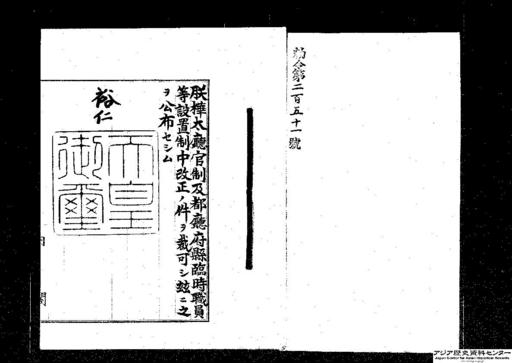 勅令第二百五十一號
朕樺太廳官制及都廳府縣臨時職員
等設置制中改正ノ件ヲ裁可シ玆ニ之
ヲ公布セシム
裕仁
天皇
御璽
内閣
アジア歴史資料センター
Japan Center for Asian Historical Records